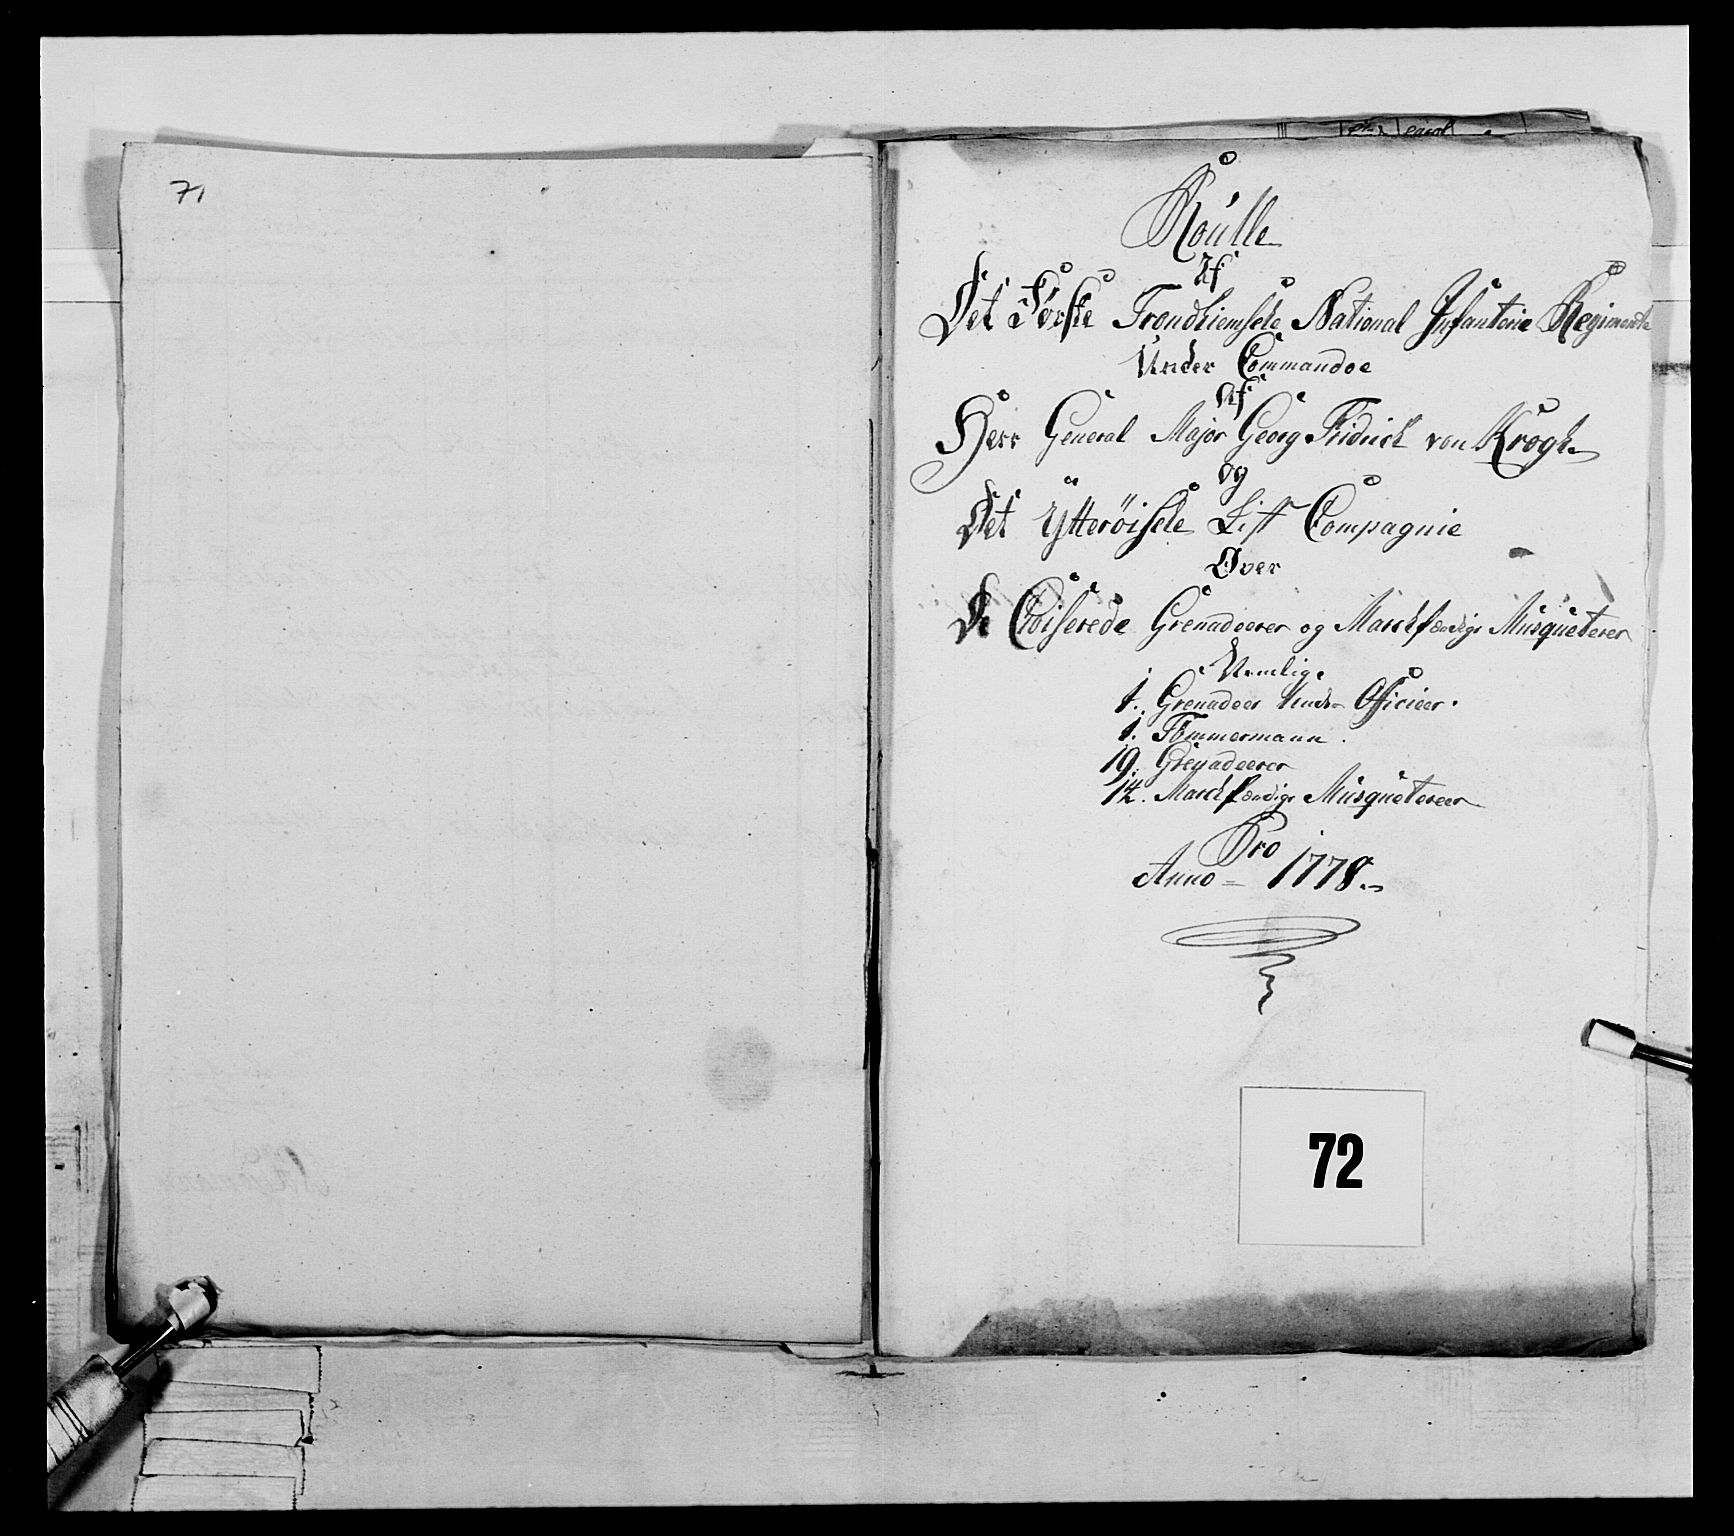 71
Roulle
Af
Det Første Trondhiemske National Infanterie Regimente
Under Commandoe
Af
Herr General Major Georg Fridrich von Krogh
og
Det Ytterøiske Lif Compagnie
Over
De Choiserede Grenadeerer og Marchfærdige Musqueterer
Nemlig
1. Grenadeer Under Officieer.
1. Tømmermann.
19. Grenadeerer
14. Marchfærdige Musquetereer
Pro
Anno = 1778.
72